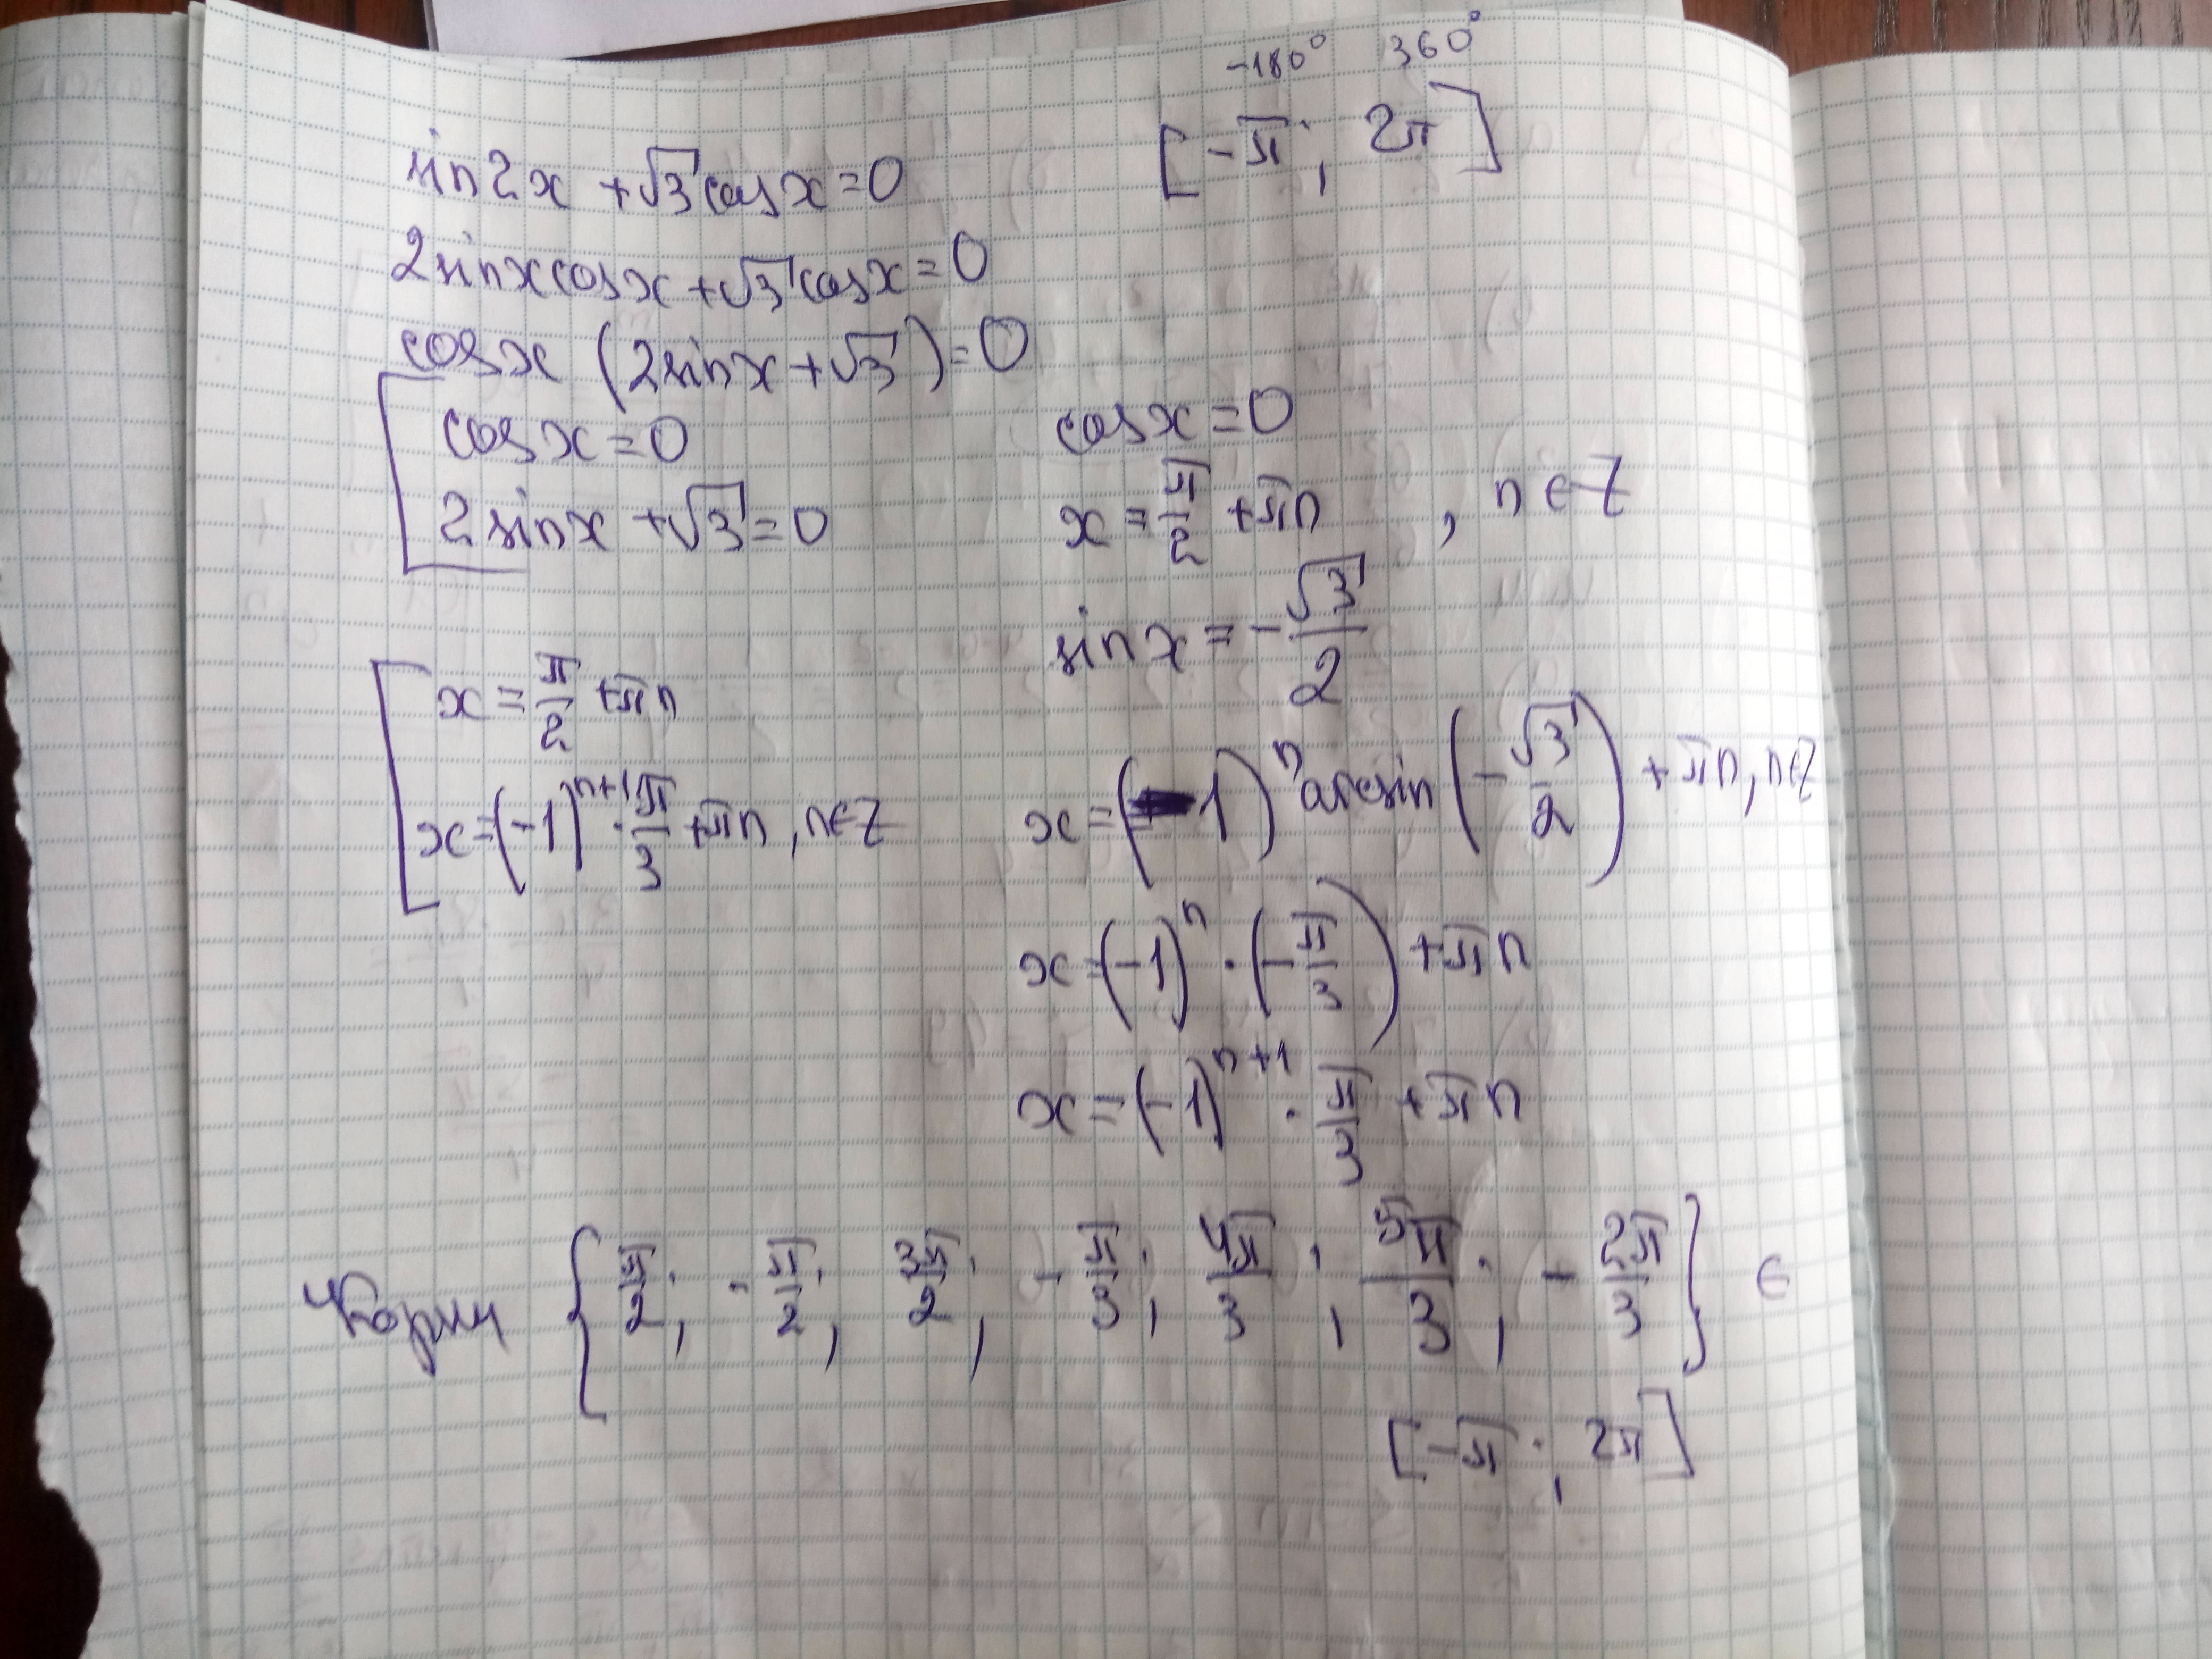 -180° 360°
sin2x + √3 cosx = 0
[-π; 2π]
2sinxcosx + √3 cosx = 0
cosx (2sinx + √3) = 0
cosx = 0
2sinx + √3 = 0
x = π/2 + πn
x = (-1)^(n+1) · π/3 + πn, n∈Z
cosx = 0
x = π/2 + πn , n∈Z
sinx = -√3/2
x = (-1)^n arcsin (-√3/2) + πn, n∈Z
x = (-1)^n · (-π/3) + πn
x = (-1)^(n+1) · π/3 + πn
Корни {π/2; -π/2; 3π/2; -π/3; 4π/3; 5π/3; -2π/3} ∈
[-π; 2π]